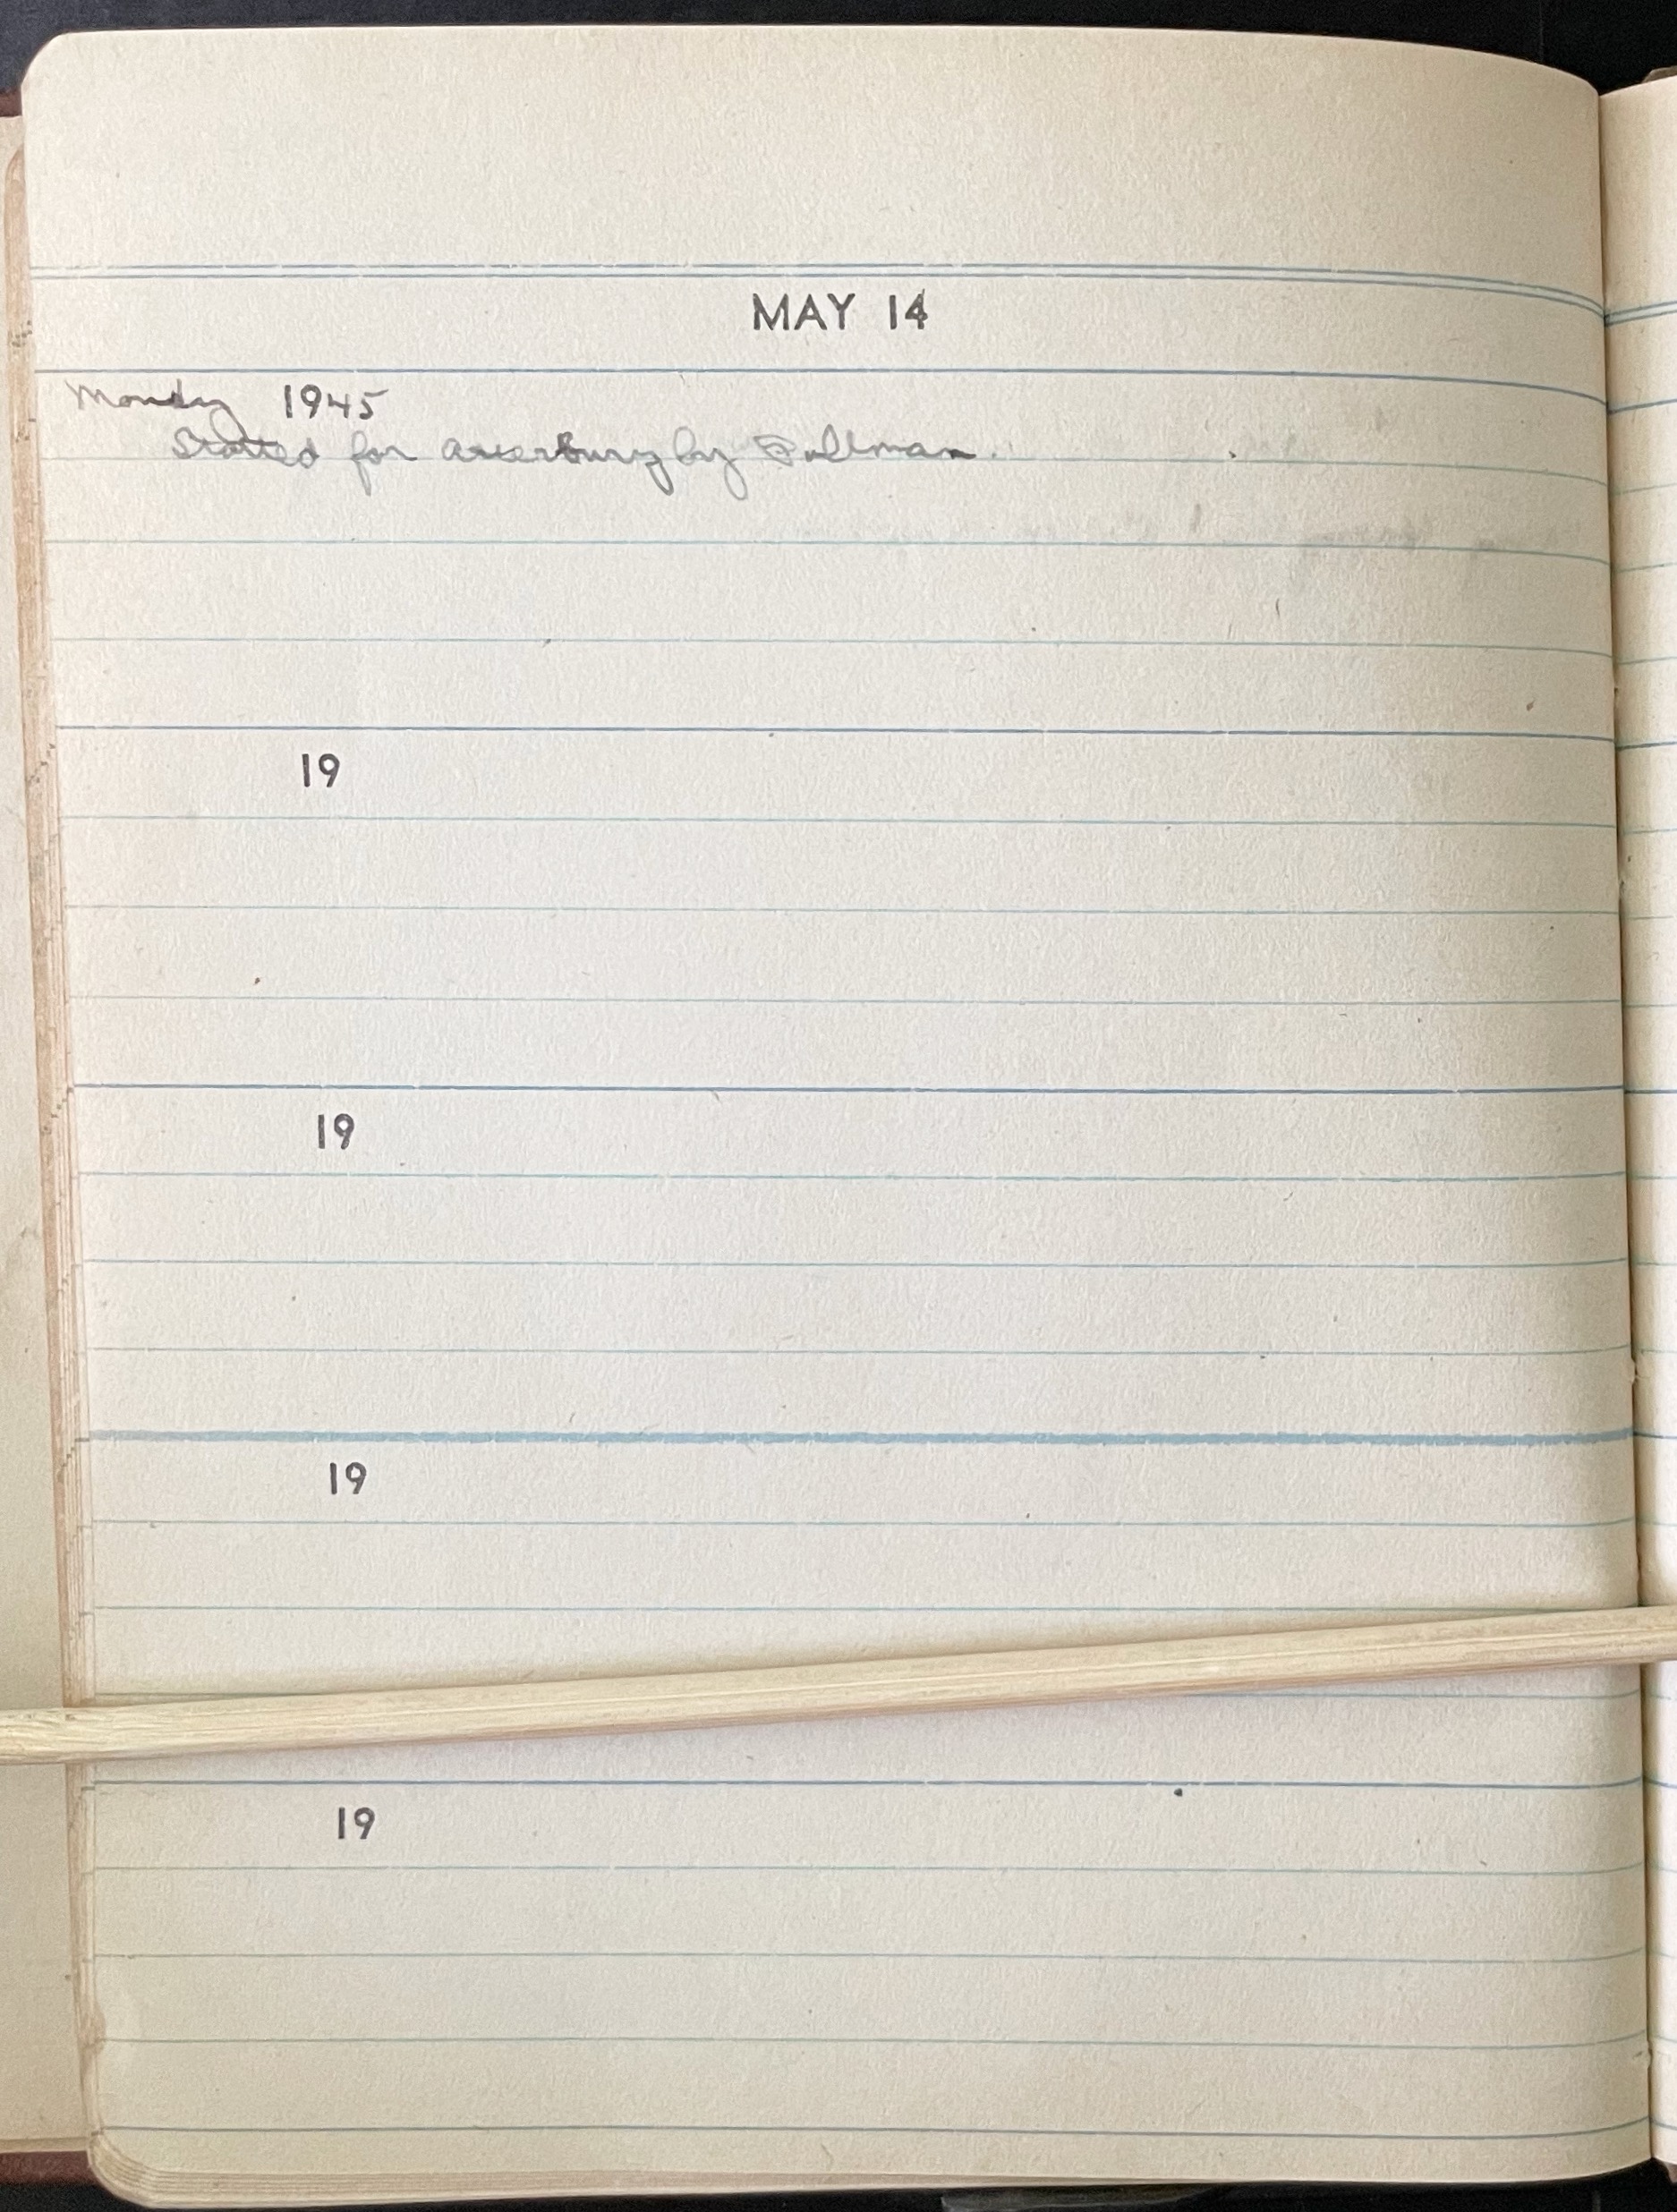 MAY 14
Monday 1945
Started for Atterbury by Pullman.
19
19
19
19